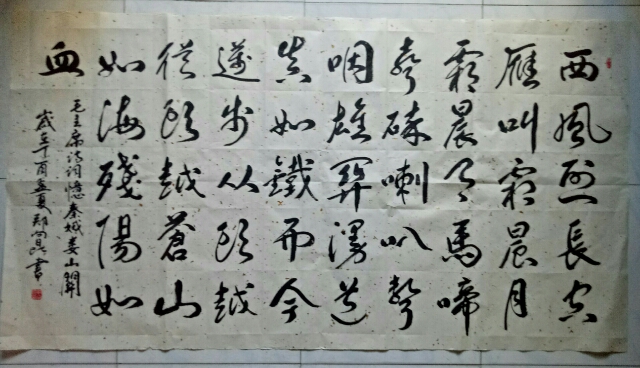 西風烈長空
雁叫霜晨月
霜晨月馬啼
聲碎喇叭聲
咽雄關漫道
真如鐵而今
邁步从頭越
從頭越蒼山
如海殘陽如
血
毛主席詩詞憶秦娥婁山關
歲在丁酉孟夏鄭書